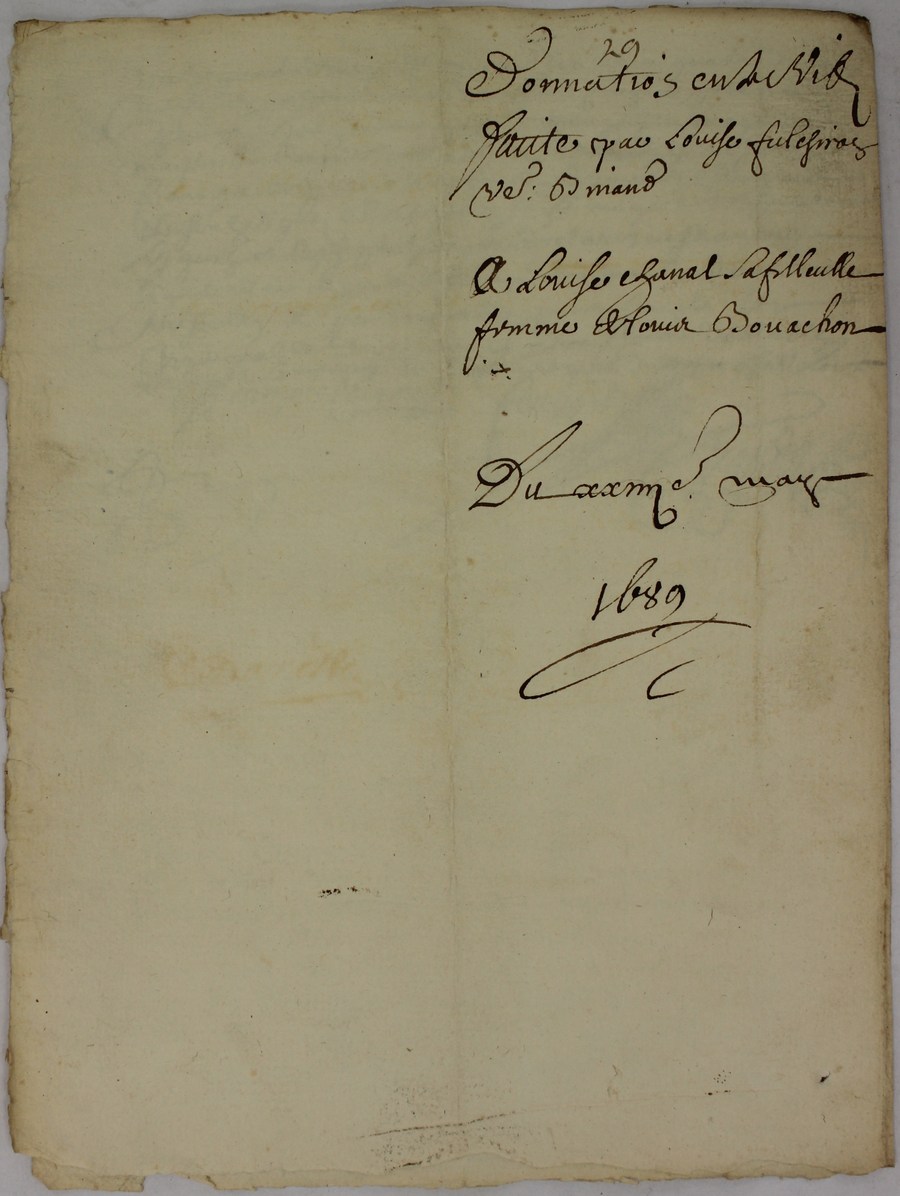 29
Donnation entre Vifz
faite par Louise fulchiron
Ve.e Briand
A Louise chanal sa filleulle
femme de Louis Bouachon
Du xxiiij e. may
1689